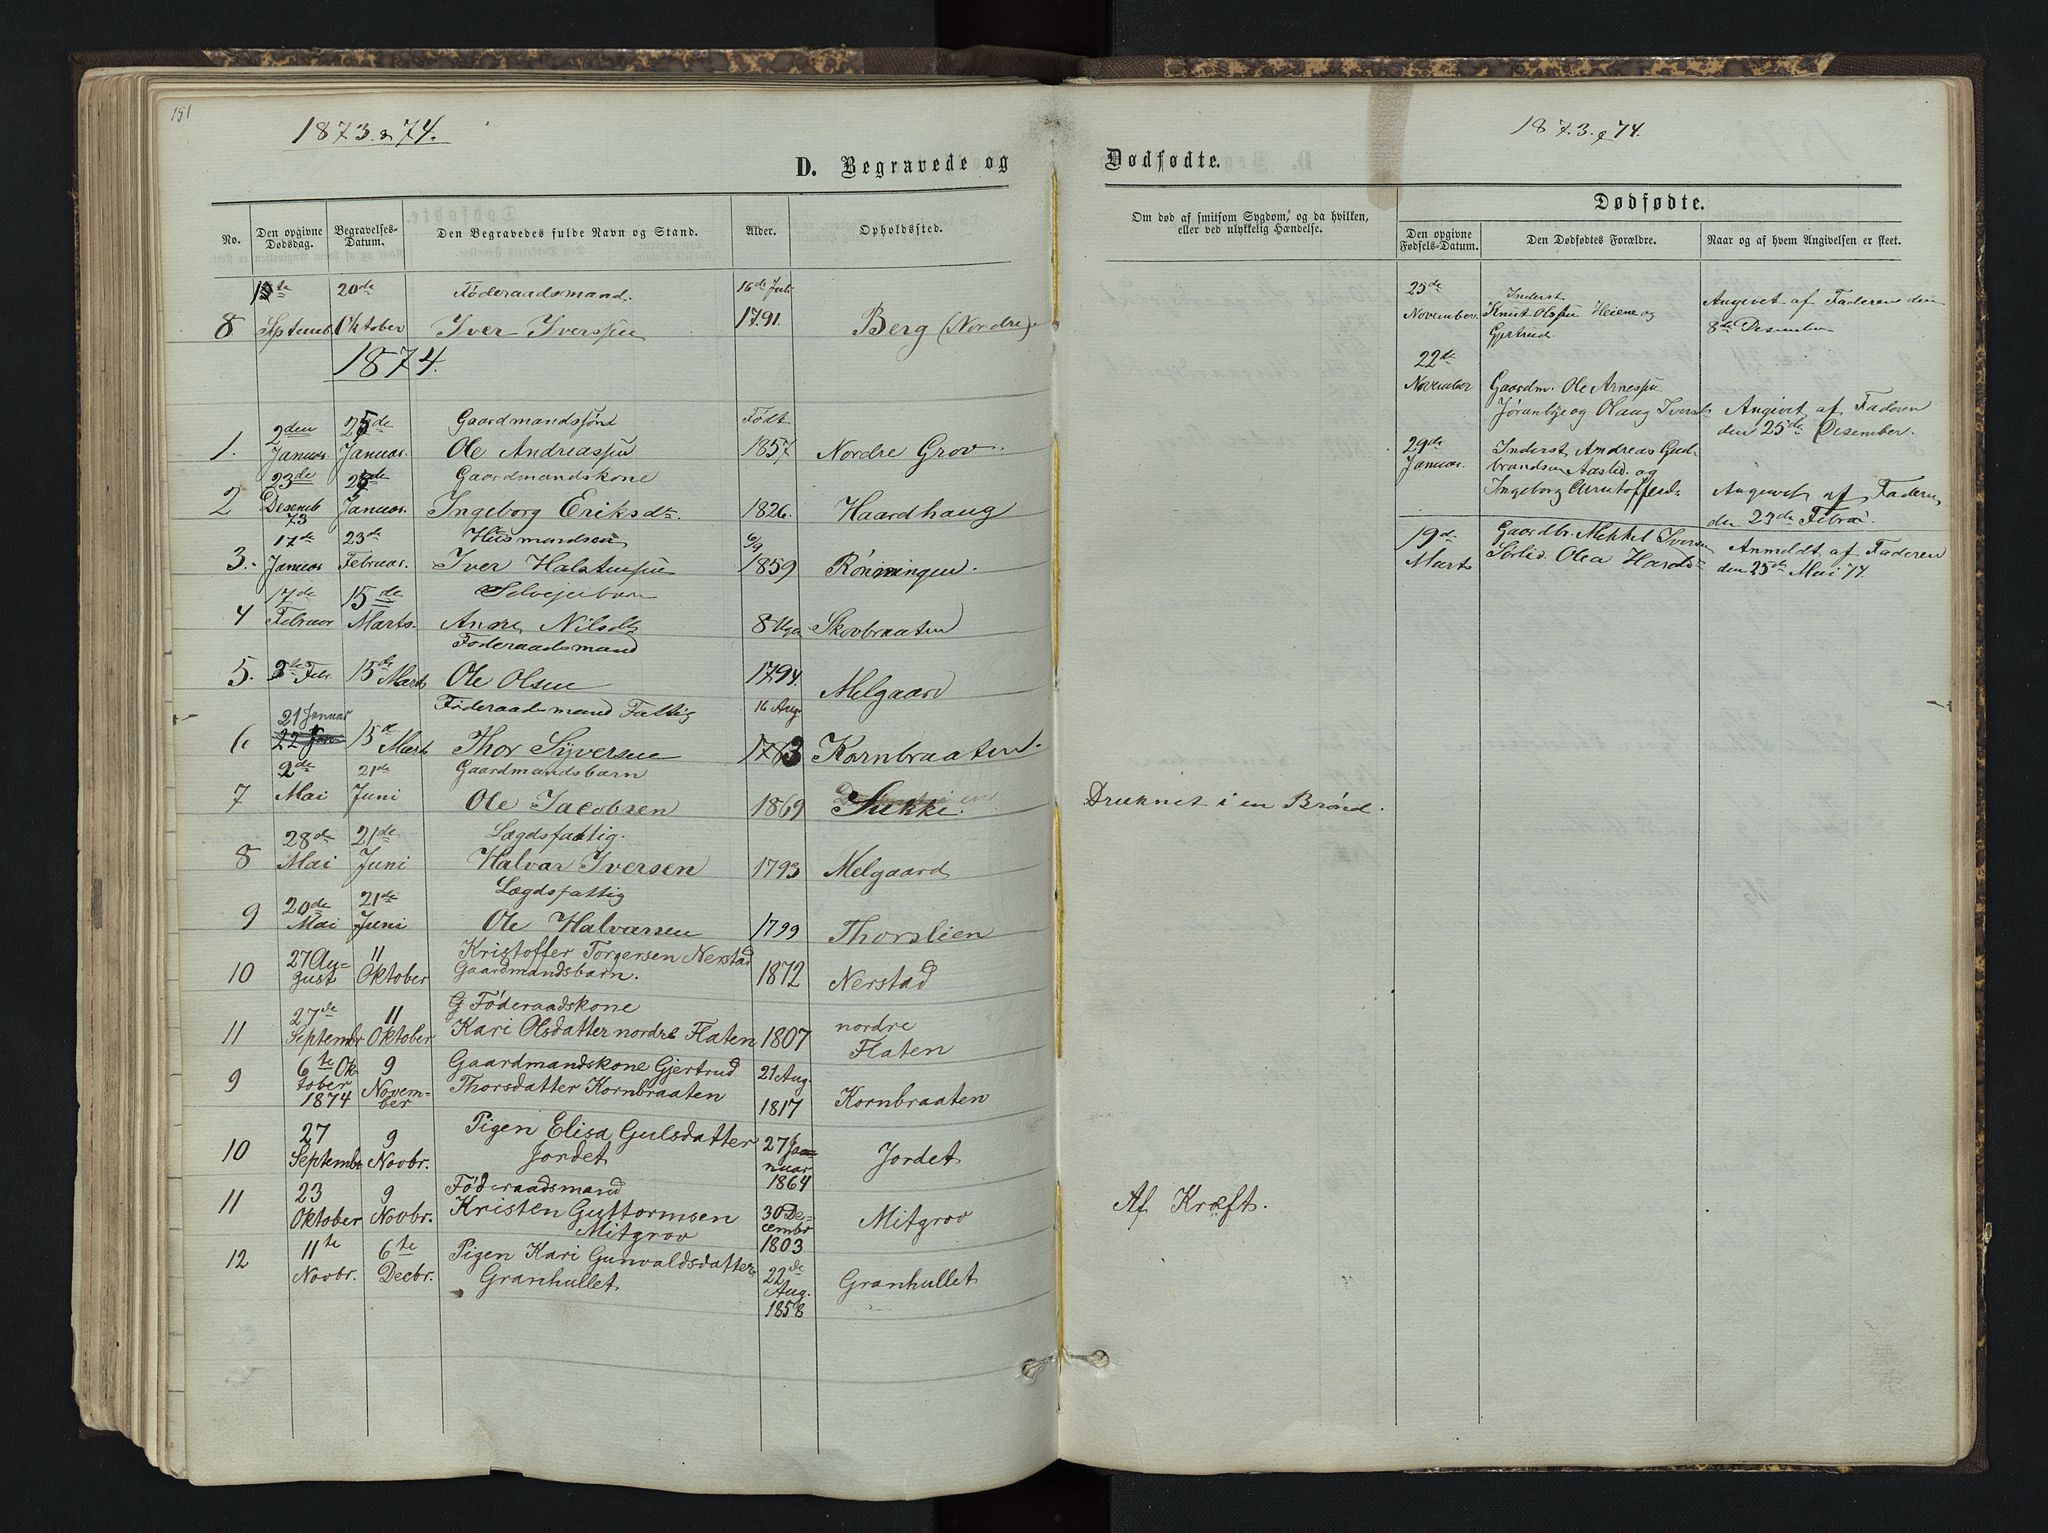 151
1873 & 74.
D. Begravede og
No.
Den opgivne Dødsdag.
Begravelses-Datum.
Den Begravedes fulde Navn og Stand.
Alder.
Opholdssted.
20de Föderaadsmand. 16de Juli
8 Septemb Oktober Iver Iversen 1791. Berg (Nordre).
1874.
2den 25de Gaardmandssøn Født
1. Januar. Januar. Ole Andreassen 1857 Nordre Grov.
23de Gaardmandskone
2 Desemb Januar. Ingeborg Eriksdt. 1826. Haardhaug
73
17de 23de Husmandsøn 6/9
3. Januar Februar. Iver Halstensen 1859 Rönningen.
17de 15de Selveierbarn
4 Februar Marts. Nilsdt 8 Uger Skovbraaten
Föderaadsmand
5. Febr. 15de Marts Ole Olsen 1794. Melgaard
21 Januar Föderaadsmand Fattig 16 Aug.
6. 22 Jan 15de Marts Thor Syversen 1763 Kornbraaten.
2de 21de Gaardmandsbarn
7 Mai Juni Ole Jacobsen 1869 Sukke.
28de 21de Lægdsfattig.
8 Mai Juni Halvar Iversen 1793 Melgaard
20de 21de Lægdsfattig
9 Mai Juni Ole Halvarsen 1799 Thorslien
27 Au- 11 Kristoffer Torgersen Nerstad
10 gust Oktober Gaardmandsbarn. 1872 Nerstad
27de 11 G Föderaadskone nordre
11 Septembr Oktober Kari Olsdatter nordre Flaten 1807 Flaten
6te Ok- 9 Gaardmandskone Gjertrud 21 Aug.
9 tober Novem- Thorsdatter Kornbraaten 1817 Kornbraaten
1874 ber
27 9 Pigen Elisa Gulsdatter 27 Ja-
10 Septembr Novbr. Jordet nuar Jordet
1864
23 9 Föderaadsmand
11 Oktober Novbr. Kristen Guttormsen 30 De- Mitgrov
Mitgrov cembr
1803
11te 6te Pigen Kari Gunvaldsdatter
12 Novbr. Decbr. Granhullet 22de Granhullet
Aug.
1858
1873. & 74.
Dødfødte.
Om død af smitsom Sygdom, og da hvilken,
eller ved ulykkelig Hændelse.
Dødfødte.
Den opgivne Fødsels-Datum.
Den Dødfødtes Forældre.
Naar og af hvem Angivelsen er skeet.
25de Inderst Angivet af Faderen den
November. Knut Olsen Heiene og 8de Desember
Gjertrud.
22de
November Gaardm. Ole Arnesen
Jöranbye og Olaug Iversd. Angivet af Faderen
den 25de Desember.
29de Inderst Andreas Gud-
Januar. brandsen Aaslid. og
Ingeborg Angivet af Faderen
den 23de Februar.
19de Gaardbr. Mikkel Iversen
Marts Sörlid Olea Haralds Anmeldt af Faderen
den 25de Mai 74.
Druknet i en Brønd.
Af Kræft.